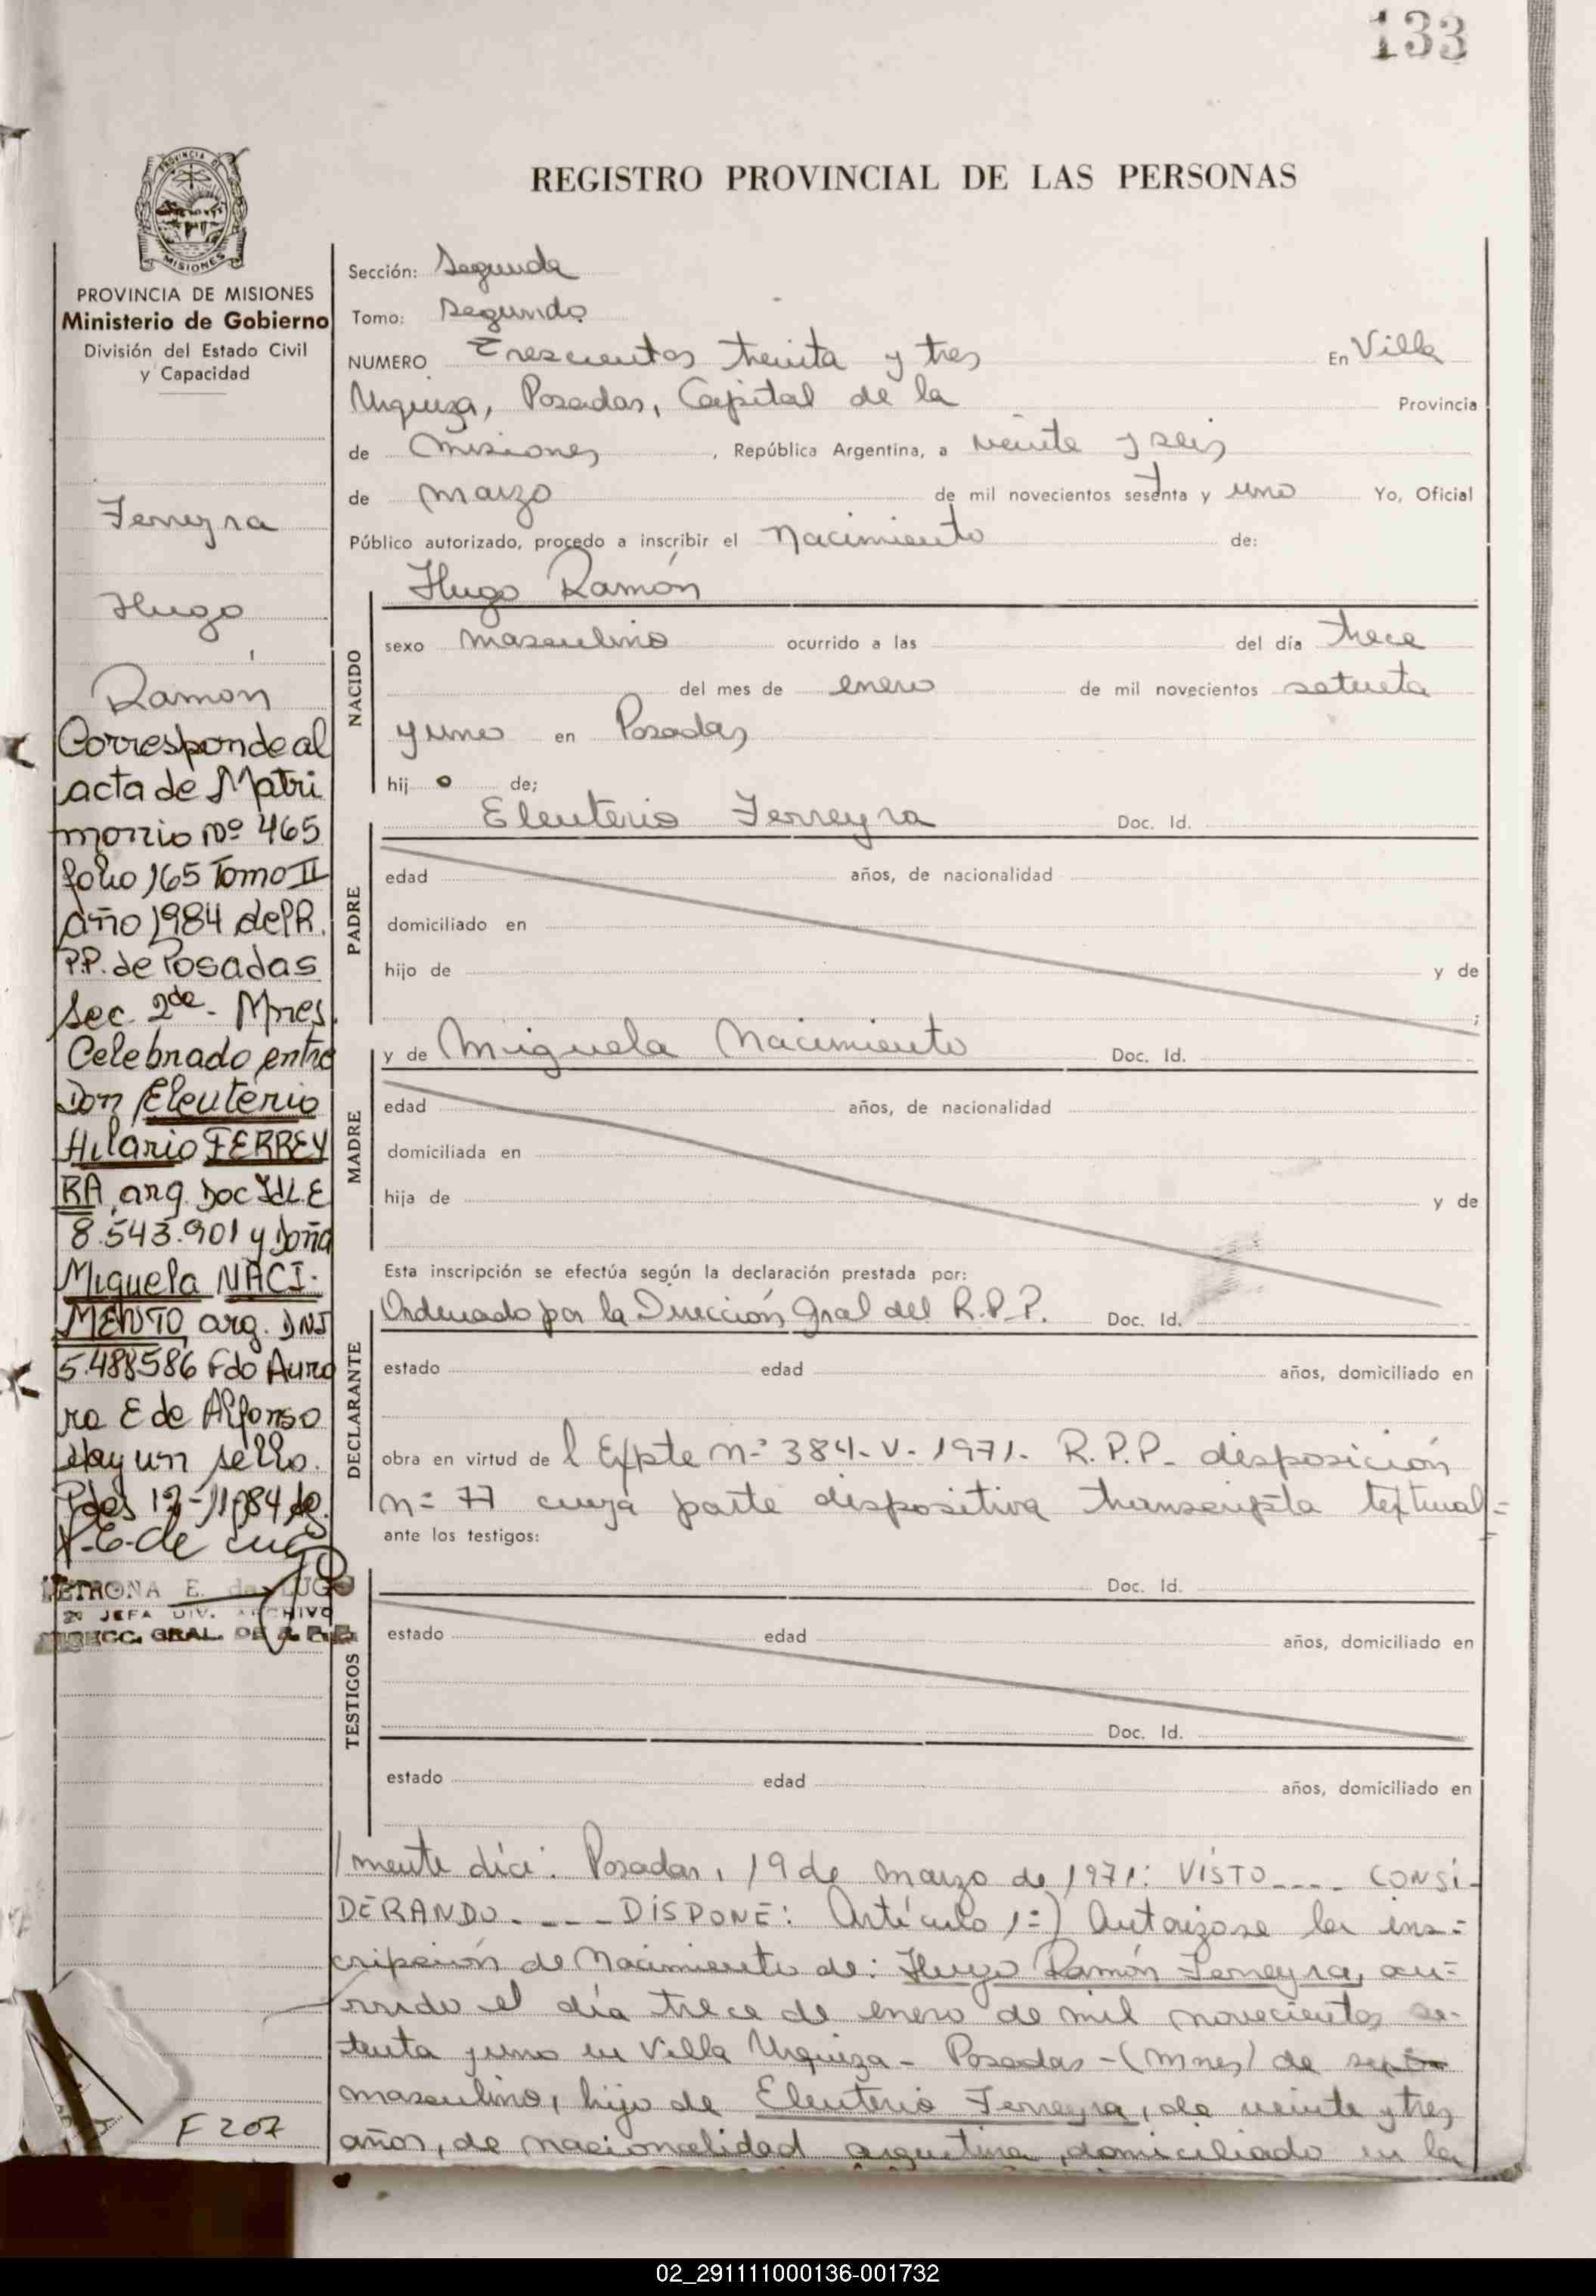 133
REGISTRO PROVINCIAL DE LAS PERSONAS
PROVINCIA DE
MISIONES
PROVINCIA DE MISIONES
Ministerio de Gobierno
División del Estado Civil
y Capacidad
Ferreyra
Hugo
Ramón
Corresponde al
acta de Matri
monio Nº 465
folio 165 Tomo II
año 1984 del R.
P.P. de Posadas
Sec. 2da - Mnes.
Celebrado entre
Don Eleuterio
Hilario FERREY
RA arg. Doc Id L.E
8.543.901 y Doña
Miguela NACI-
MENTO arg. DNI
5.488586 Fdo Auro
ra E de Alfonso
Hay un sello.
Pdas 12-11-84
PETRONA E. de LUGO
JEFA DIV. ARCHIVO
DIRECC. GRAL. DE R.P.P.
F 207
Sección: Segunda
Tomo: Segundo
NUMERO Trescientos treinta y tres En Villa
Urquiza, Posadas, Capital de la Provincia
de Misiones, República Argentina, a veinte y seis
de marzo de mil novecientos sesenta y uno Yo, Oficial
Público autorizado, procedo a inscribir el Nacimiento de:
Hugo Ramón
NACIDO
sexo masculino ocurrido a las del día trece
del mes de enero de mil novecientos setenta
y uno en Posadas
hijo de;
Eleuterio Ferreyra Doc. Id.
PADRE
edad años, de nacionalidad
domiciliado en
hijo de y de
;
y de Miguela Nacimiento Doc. Id.
MADRE
edad años, de nacionalidad
domiciliada en
hija de y de
Esta inscripción se efectúa según la declaración prestada por:
Ordenado por la Dirección Gral del R.P.P. Doc. Id.
DECLARANTE
estado edad años, domiciliado en
obra en virtud del Expte nº 384-V-1971- R.P.P- disposición
nº 77 cuya parte dispositiva transcripta textual=
ante los testigos:
Doc. Id.
TESTIGOS
estado edad años, domiciliado en
Doc. Id.
estado edad años, domiciliado en
/mente dice: Posadas, 19 de marzo de 1971: VISTO---- CONSI-
DERANDO.----DISPONE: Artículo 1º) Autorizase la ins=
cripción de Nacimiento de: Hugo Ramón Ferreyra, ocu=
rrido el día trece de enero de mil novecientos se-
tenta y uno en Villa Urquiza - Posadas - (Mnes) de sexo
masculino, hijo de Eleuterio Ferreyra, de veinte y tres
años, de nacionalidad argentina, domiciliado en la
02_291111000136-001732